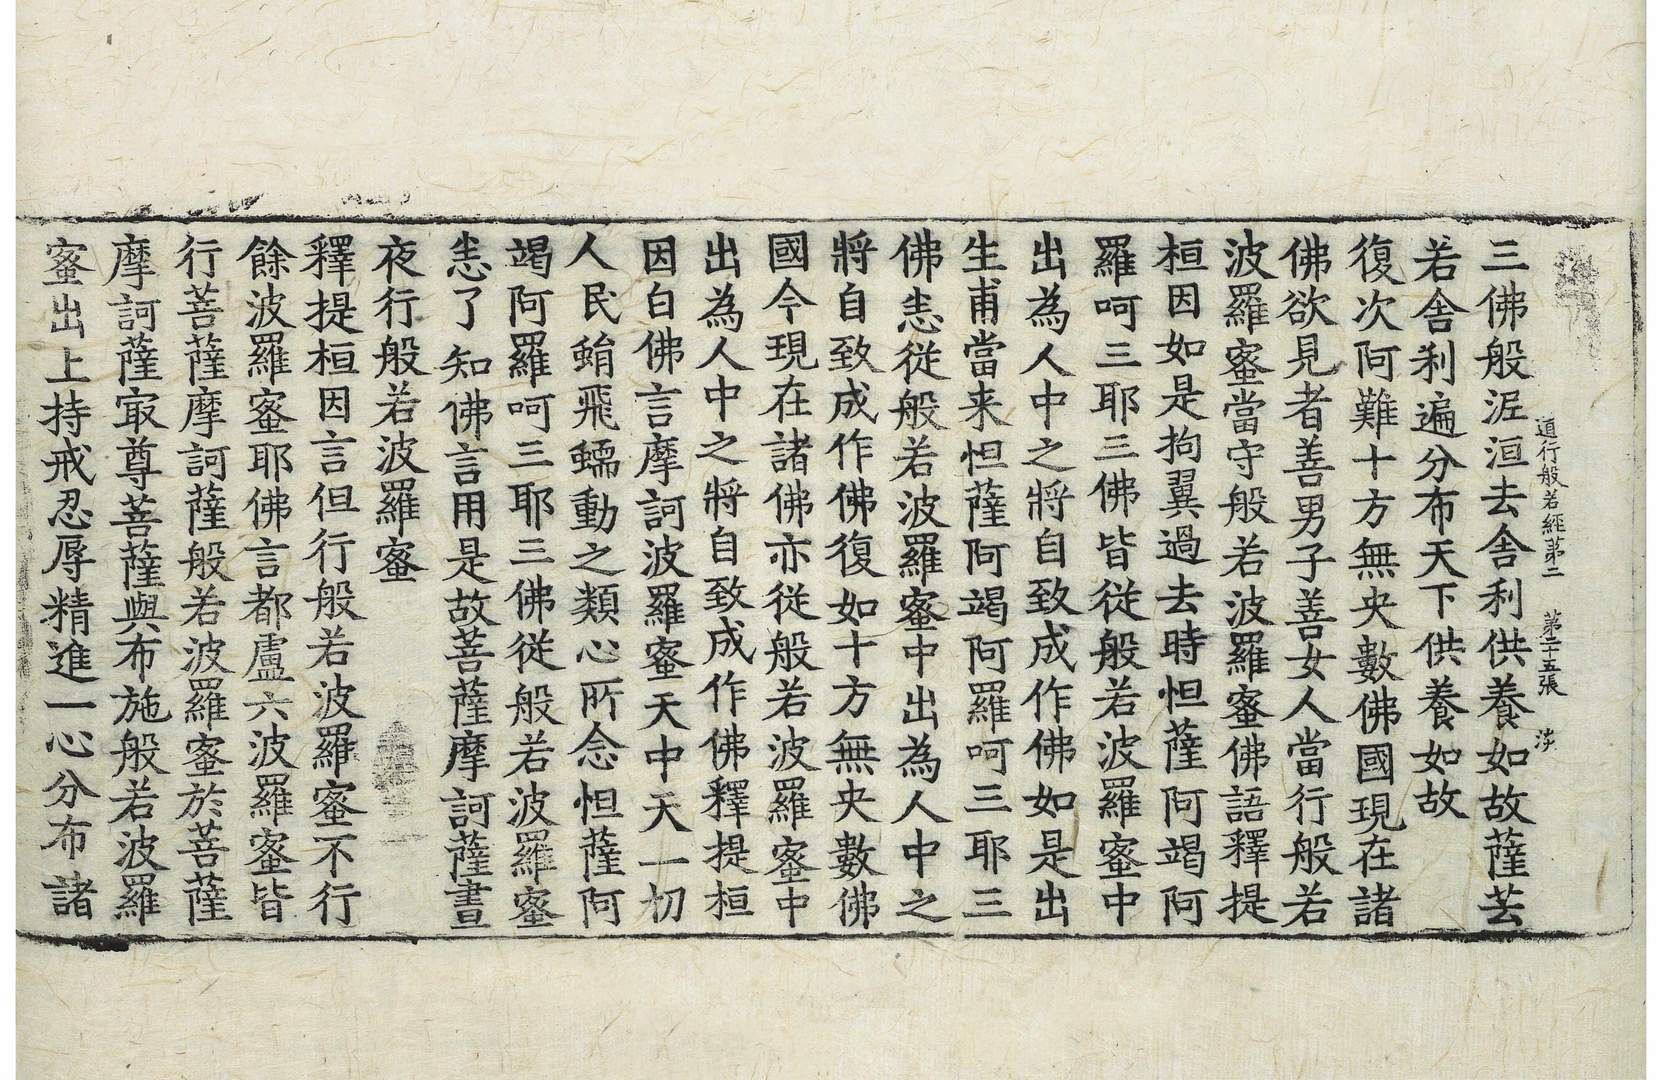 道行般若經第二　第二十五張　淡
三佛般泥洹去舎利供養如故薩芸
若舎利遍分布天下供養如故
復次阿難十方無央數佛國現在諸
佛欲見者善男子善女人當行般若
波羅蜜當守般若波羅蜜佛語釋提
桓因如是拘翼過去時怛薩阿竭阿
羅呵三耶三佛皆從般若波羅蜜中
出為人中之將自致成作佛如是出
生甫當来怛薩阿竭阿羅呵三耶三
佛恚從般若波羅蜜中出為人中之
將自致成作佛復如十方無央數佛
國今現在諸佛亦從般若波羅蜜中
出為人中之將自致成作佛釋提桓
因白佛言摩訶波羅蜜天中天一切
人民蜎飛蠕動之類心所念怛薩阿
竭阿羅呵三耶三佛從般若波羅蜜
恚了知佛言用是故菩薩摩訶薩晝
夜行般若波羅蜜
釋提桓因言但行般若波羅蜜不行
餘波羅蜜耶佛言都盧六波羅蜜皆
行菩薩摩訶薩般若波羅蜜於菩薩
摩訶薩㝡尊菩薩與布施般若波羅
蜜出上持戒忍辱精進一心分布諸